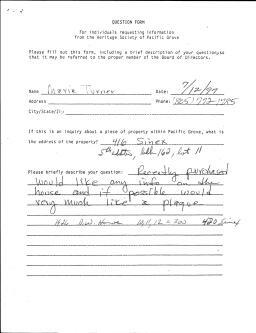 QUESTION FORM
for individuals requesting information
from the Heritage Society of Pacific Grove
Please fill out this form, including a brief description of your question,so
that it may be referred to the proper member of the Board of Directors.
Name Marie Turner Date: 7/12/97
Address Phone: (805) 772-1785
City/State/Zip
If this is an inquiry about a piece of property within Pacific Grove, what is
the address of the property? 416 Sinex
5th addtn, blk 162, lot 11
Please briefly describe your question: Recently purchased
would like any info on the
house and if possible would
very much like a plaque
1426 D.W. House 10, 11, 12 = 300 420 Sinex